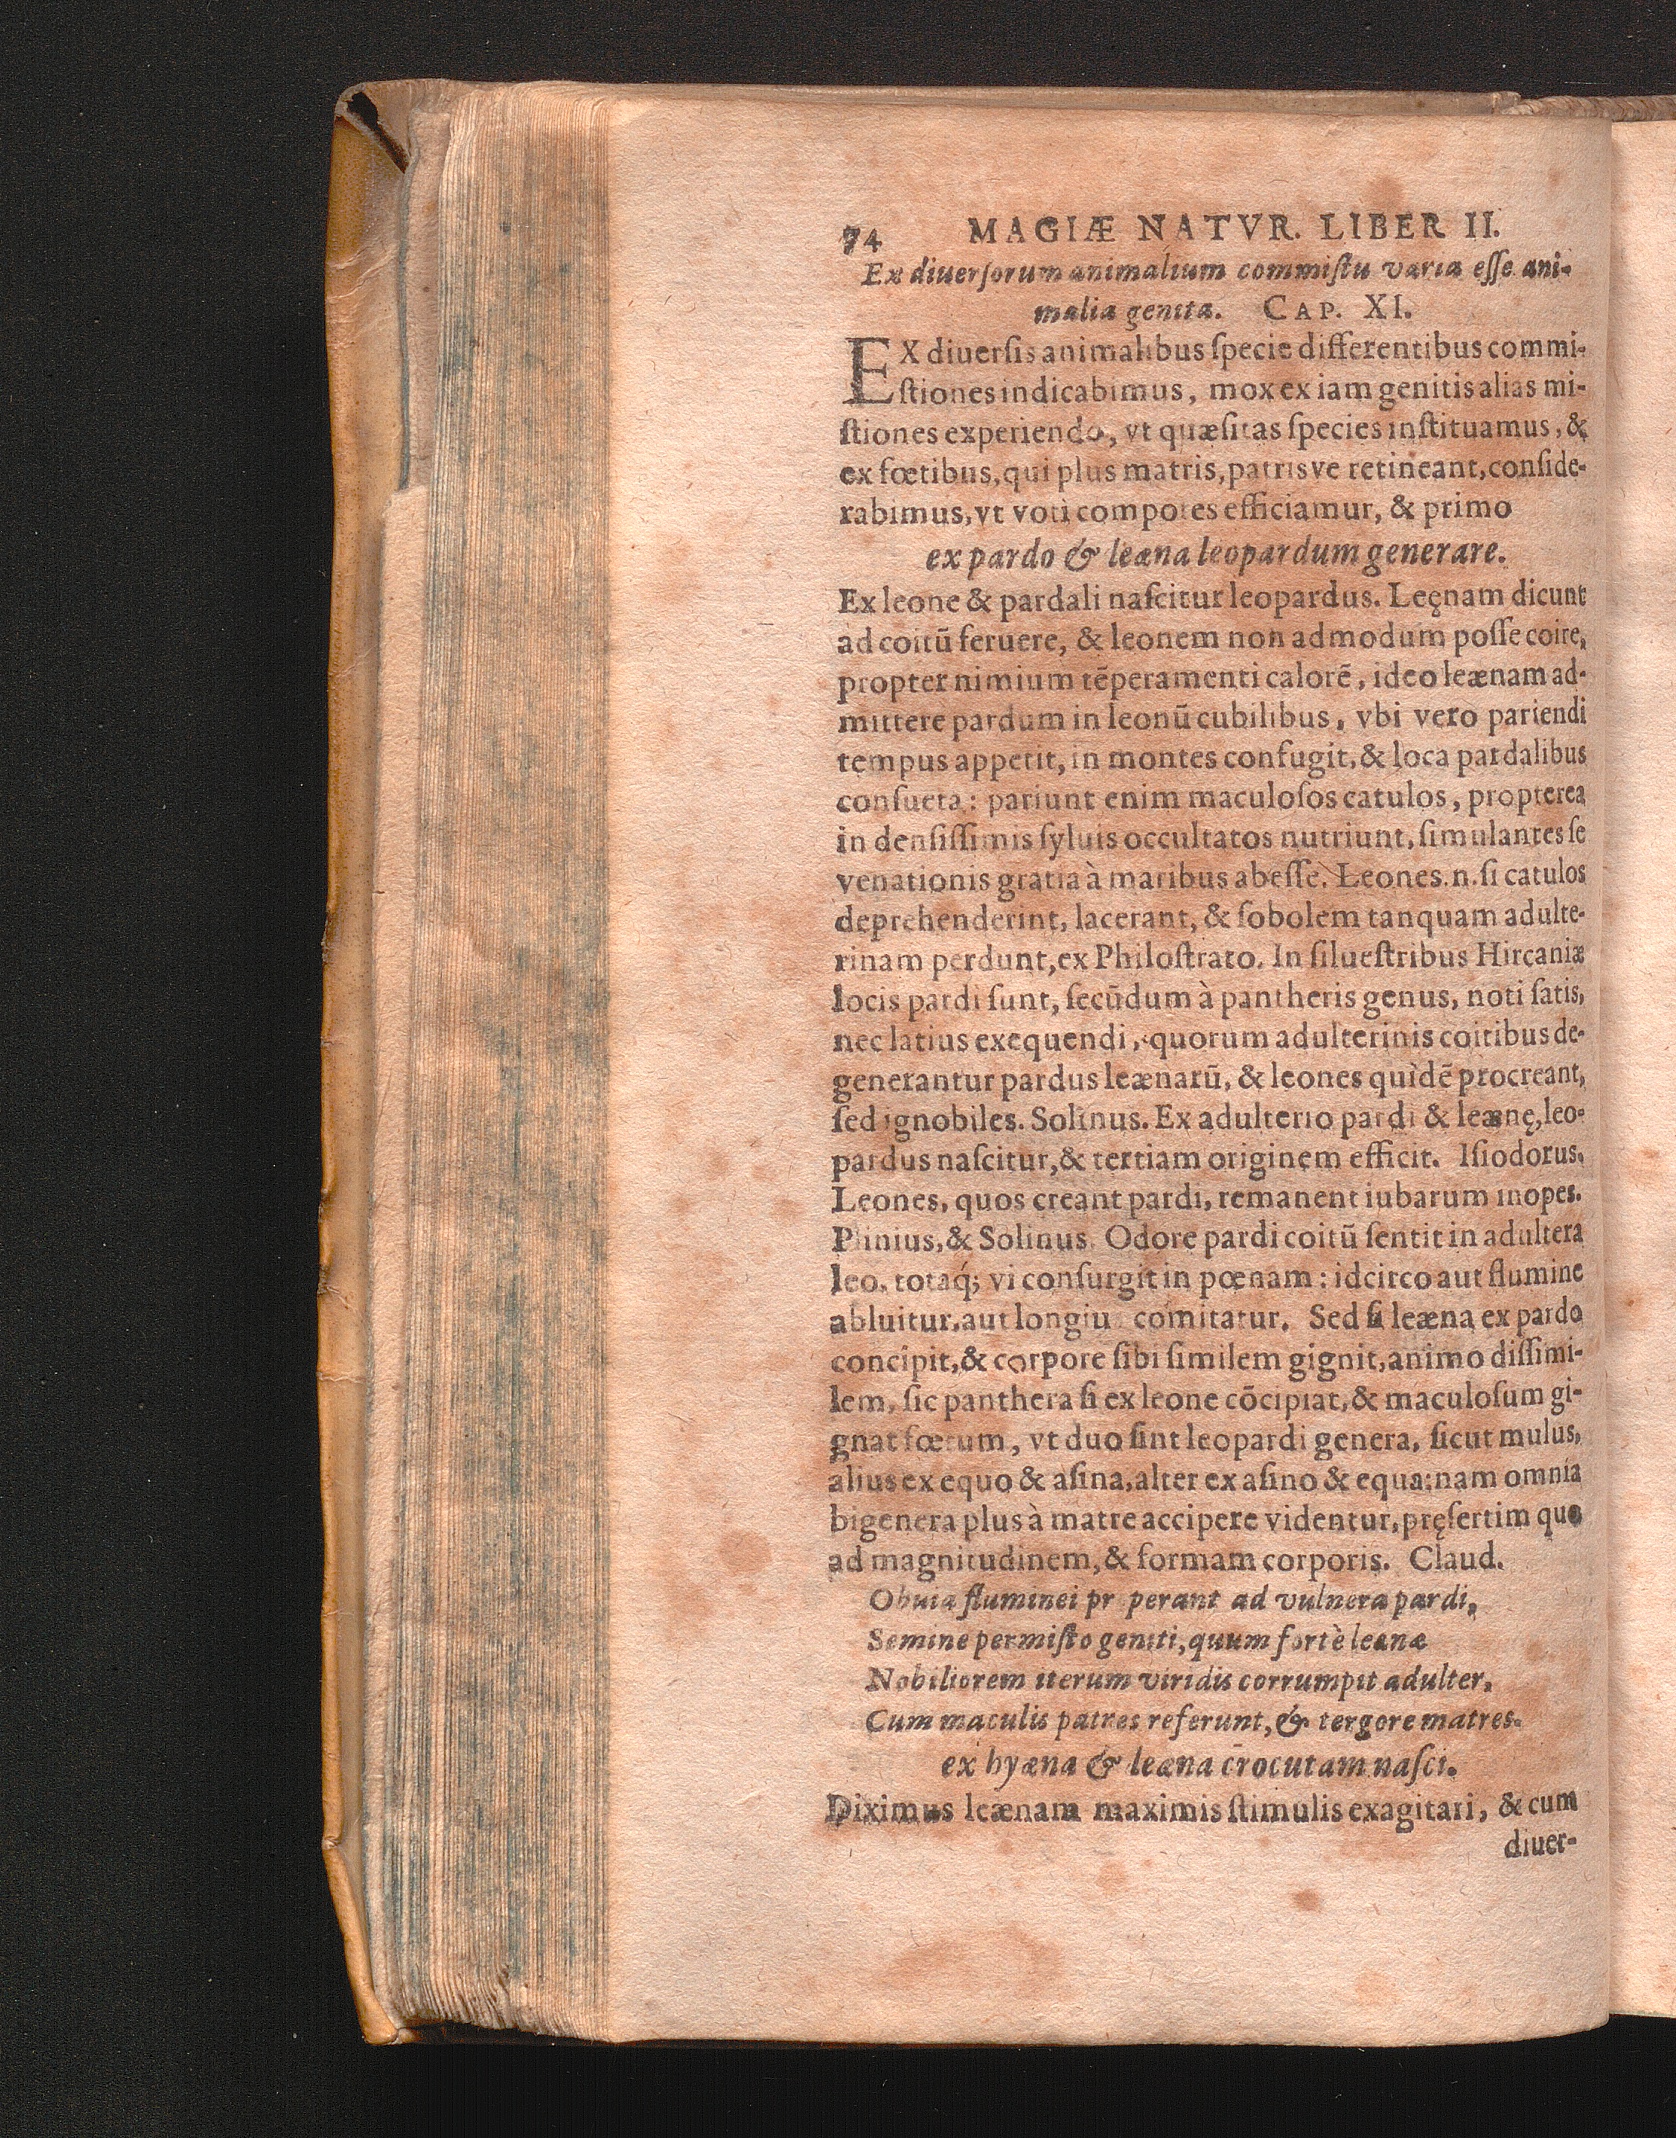 74 MAGIÆ NATVR. LIBER II.
Ex diuerſorum animalium commiſtu varia eſſe ani-
malia genita. CAP. XI.
EX diuerſis animalibus ſpecie differentibus commi-
ſtiones indicabimus, mox ex iam genitis alias mi-
ſtiones experiendo, vt quæſitas ſpecies inſtituamus, &
ex fœtibus, qui plus matris, patrisve retineant, conſide-
rabimus, vt voti compotes efficiamur, & primo
ex pardo & leæna leopardum generare.
Ex leone & pardali naſcitur leopardus. Leęnam dicunt
ad coitū feruere, & leonem non admodum poſſe coire,
propter nimium tēperamenti calorē, ideo leænam ad-
mittere pardum in leonū cubilibus, vbi vero pariendi
tempus appetit, in montes confugit, & loca pardalibus
conſueta: pariunt enim maculoſos catulos, propterea
in denſiſſimis ſyluis occultatos nutriunt, ſimulantes ſe
venationis gratia à maribus abeſſe. Leones.n.ſi catulos
deprehenderint, lacerant, & ſobolem tanquam adulte-
rinam perdunt, ex Philoſtrato. In ſilueſtribus Hircaniæ
locis pardi ſunt, ſecūdum à pantheris genus, noti ſatis,
nec latius exequendi, quorum adulterinis coitibus de-
generantur pardus leænarū, & leones quidē procreant,
ſed ignobiles. Solinus. Ex adulterio pardi & leænę, leo-
pardus naſcitur, & tertiam originem efficit. Iſiodorus.
Leones, quos creant pardi, remanent iubarum inopes.
Plinius, & Solinus. Odore pardi coitū ſentit in adultera
leo, totaq́; vi conſurgit in pœnam: idcirco aut flumine
abluitur, aut longiu comitatur. Sed ſi leæna ex pardo
concipit, & corpore ſibi ſimilem gignit, animo diſſimi-
lem, ſic panthera ſi ex leone cōcipiat, & maculoſum gi-
gnat fœtum, vt duo ſint leopardi genera, ſicut mulus,
alius ex equo & aſina, alter ex aſino & equa: nam omnia
bigenera plus à matre accipere videntur, pręſertim quo
ad magnitudinem, & formam corporis. Claud.
Obuia fluminei pr perant ad vulnera pardi,
Semine permiſto geniti, quum fortè leænæ
Nobiliorem uterum viridis corrumpit adulter,
Cum maculis patres referunt, & tergore matres.
ex hyæna & leæna crocutam naſci.
Diximus leænam maximis ſtimulis exagitari, & cum
diuer-